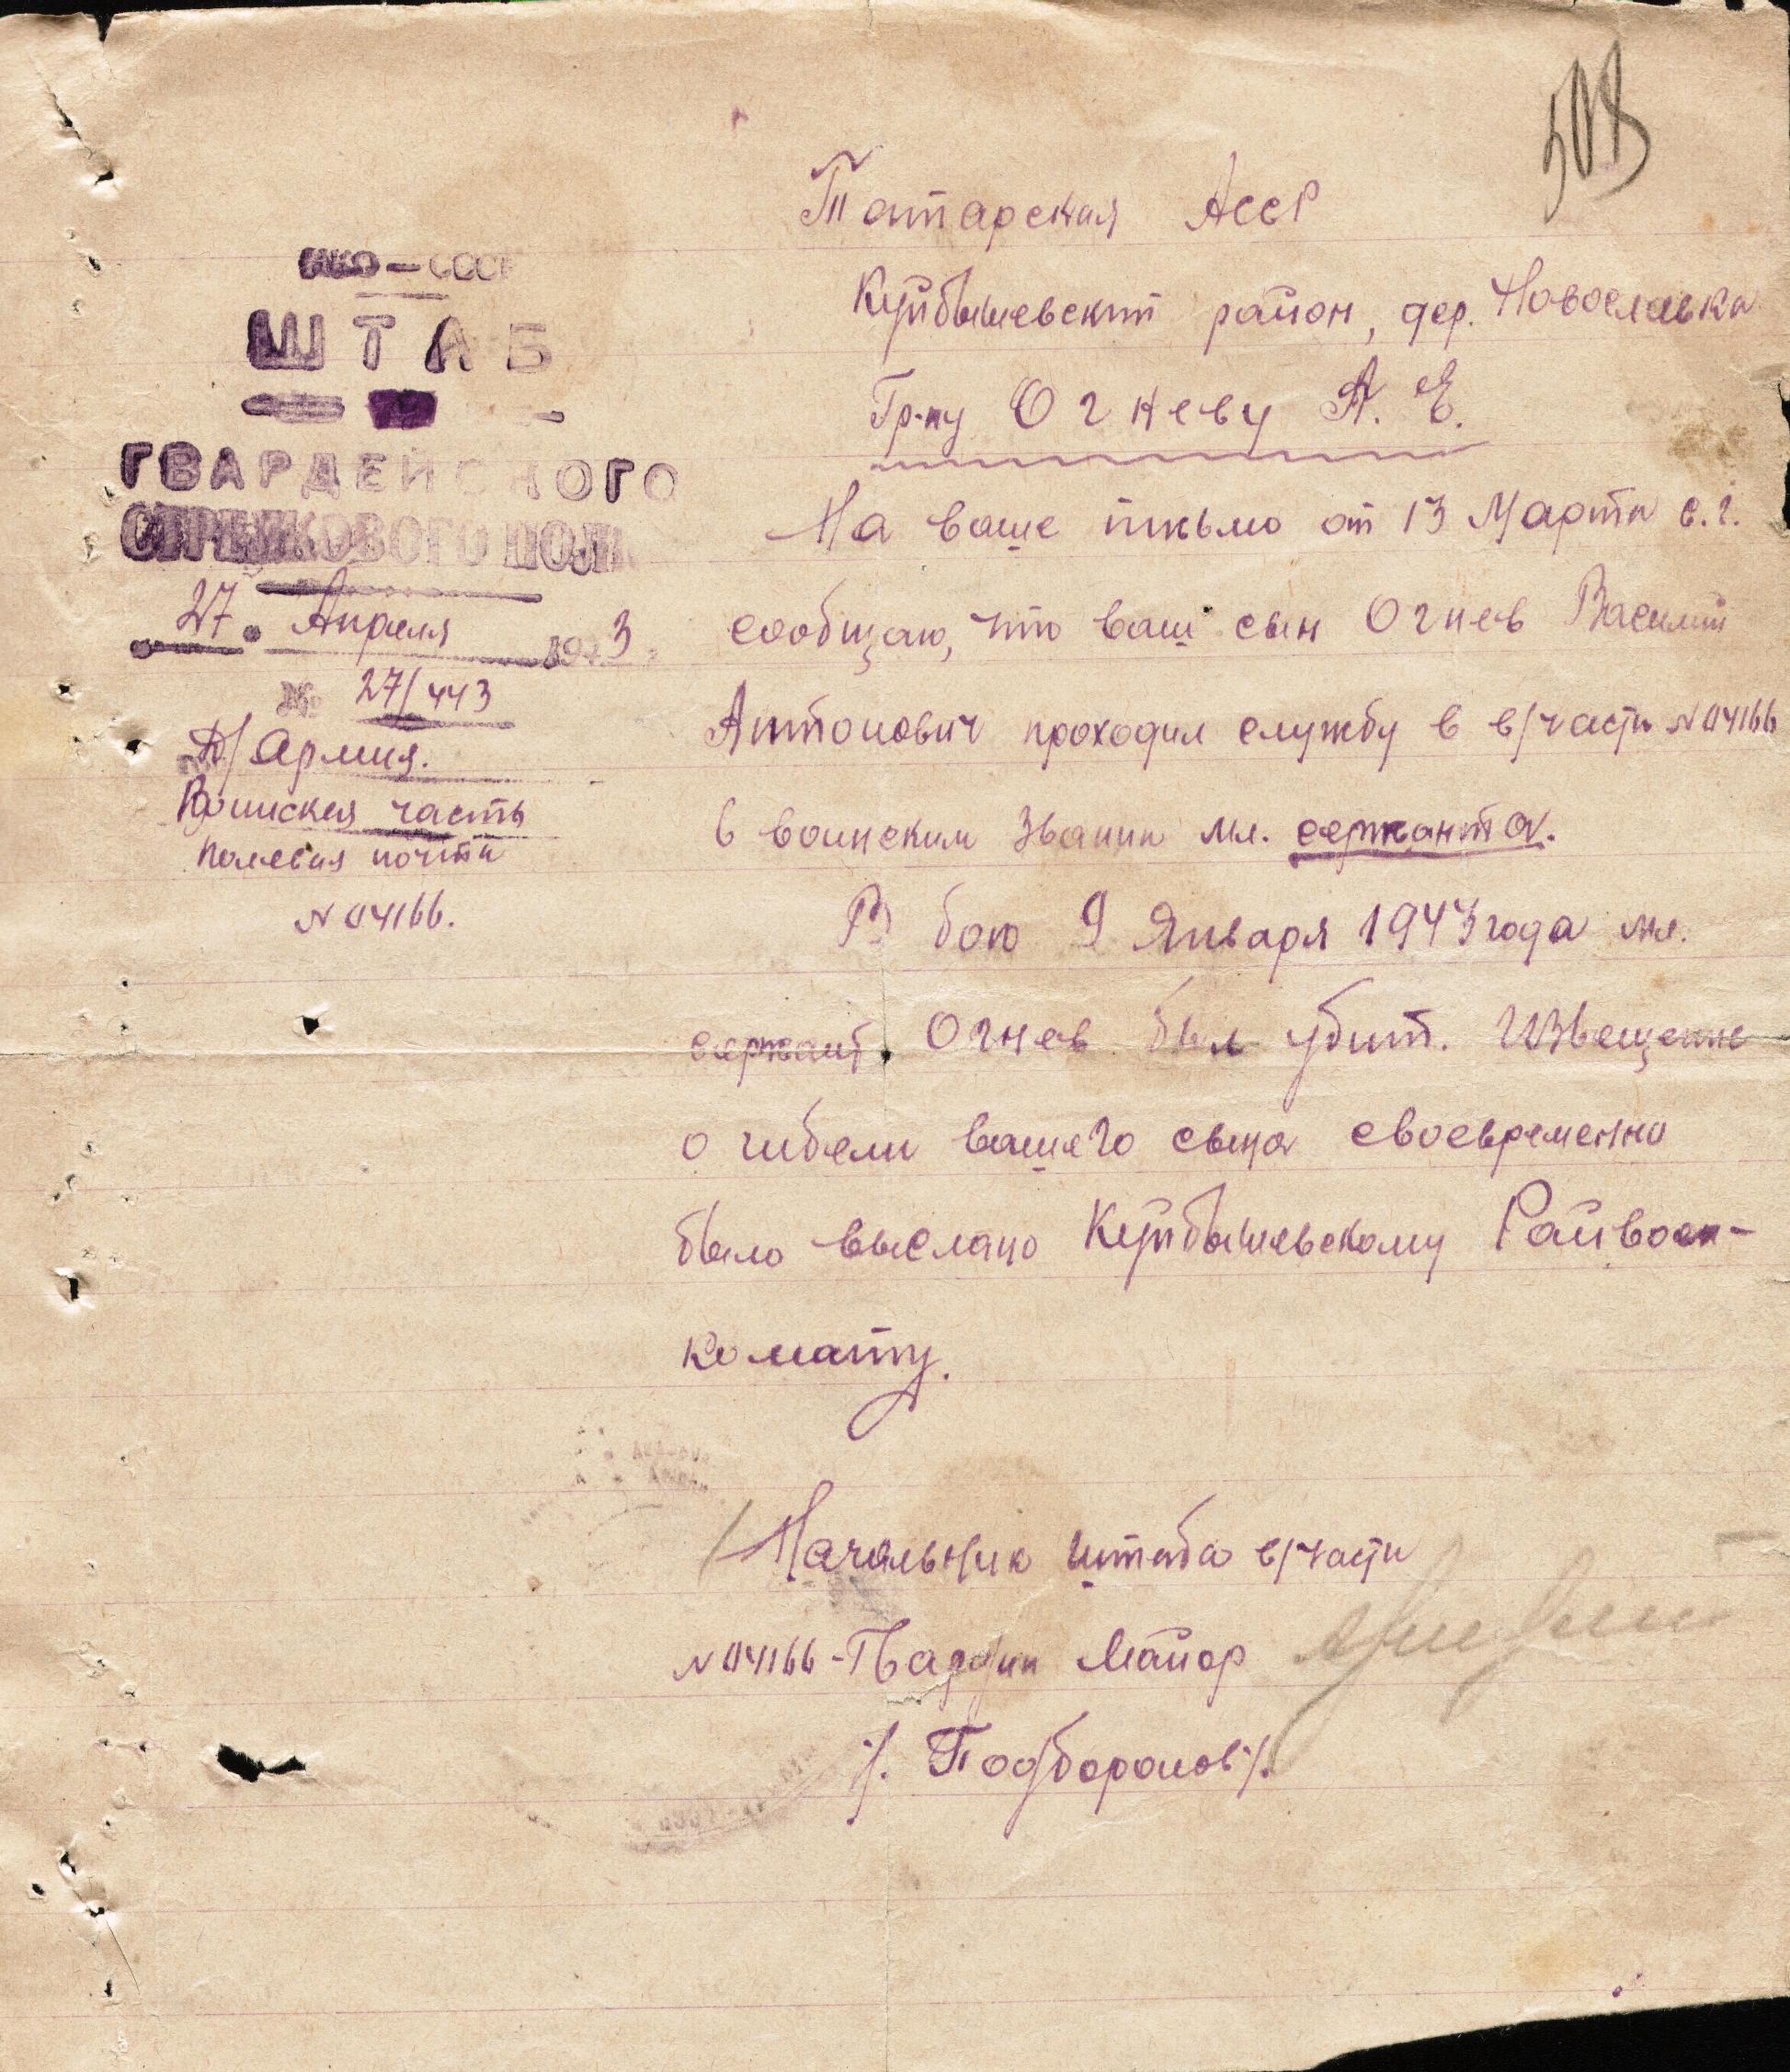 508
НКО — СССР
ШТАБ
ГВАРДЕЙСКОГО
СТРЕЛКОВОГО ПОЛКА
27 Апреля 1943
№ 27/443
Д/Армия.
Воинская часть
полевая почта
№ 04166.
Татарская АССР
Куйбышевский район, дер. Новославка
Гр-ну Огневу А. Е.
На ваше письмо от 13 Марта с.г.
сообщаю, что ваш сын Огнев Василий
Антонович проходил службу в в/части № 04166
в воинском звании мл. сержанта.
В бою 9 Января 1943 года мл.
сержант Огнев был убит. Извещение
о гибели вашего сына своевременно
было выслано Куйбышевскому Райвоен-
комату.
Начальник штаба в/части
№ 04166 - Гвардии Майор
/. Подборонов /.